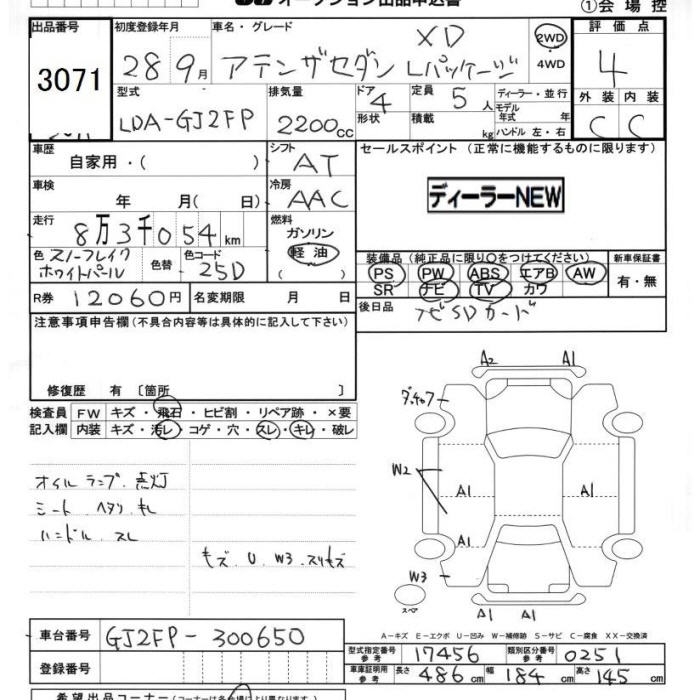 オークション出品申込書
①会場控
出品番号 3071
初度登録年月 28 9月
車名・グレード アテンザセダン XD Lパッケージ
2WD
・4WD
評価点 4
外装 内装
C C
型式 LDA-GJ2FP
排気量 2200cc
ドア 4 形状
定員 5人
積載 kg
ディーラー・並行
モデル年式 年
ハンドル 左・右
車歴 自家用・( )
シフト AT
セールスポイント(正常に機能するものに限ります)
ディーラーNEW
車検 年 月( 日)
冷房 AAC
走行 8万3千054km
燃料 ガソリン
軽油
( )
色 スノーフレイクホワイトパール
色替
色コード 25D
装備品(純正品に限り○をつけてください)
PS PW ABS エアB AW
SR ナビ TV カワ
新車保証書
有・無
R券 12060円
名変期限 月 日
後日品 ナビSDカード
注意事項申告欄(不具合内容等は具体的に記入して下さい)
修復歴 有〔箇所 〕
検査員記入欄
FW キズ・飛石・ヒビ割・リペア跡・×要
内装 キズ・汚レ・コゲ・穴・スレ・キレ・破レ
オイルランプ.点灯
シート ヘタリ キレ
ハンドル.スレ
キズ.U.W3.スリキズ
A2 A1
W2
A1 A1
A1
W3
A1 A1
スペア
A-キズ E-エクボ U-凹み W-補修跡 S-サビ C-腐食 XX-交換済
車台番号 GJ2FP-300650
登録番号
型式指定番号 参考 17456
類別区分番号 参考 0251
車庫証明用 参考 長さ 486cm 幅 184cm 高さ 145cm
希望出品コーナー(コーナーは各会場により異なります)